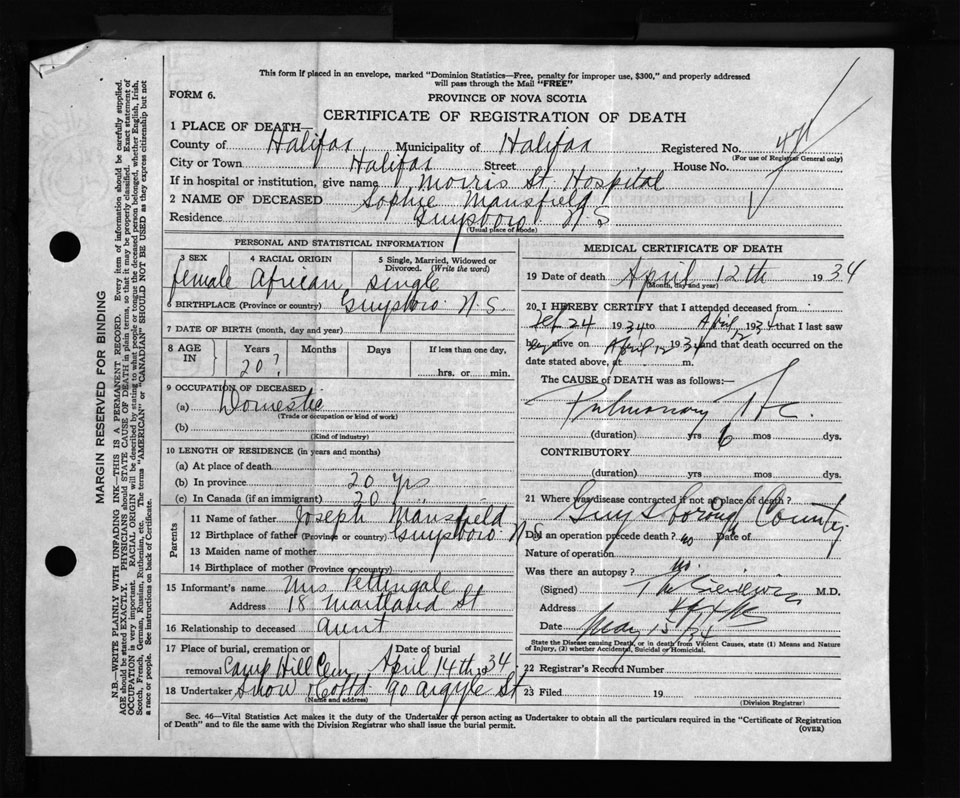 This form if placed in an envelope, marked "Dominion Statistics—Free, penalty for improper use, $300," and properly addressed
will pass through the Mail "FREE"
FORM 6.
PROVINCE OF NOVA SCOTIA
CERTIFICATE OF REGISTRATION OF DEATH
1 PLACE OF DEATH—
County of Halifax Municipality of Halifax Registered No.
(For use of Registrar General only)
City or Town Halifax Street House No.
If in hospital or institution, give name Morris St. Hospital
2 NAME OF DECEASED Sophie Mansfield
Residence Guysboro N S
(Usual place of abode)
PERSONAL AND STATISTICAL INFORMATION
3 SEX 4 RACIAL ORIGIN 5 Single, Married, Widowed or Divorced. (Write the word)
female African single
6 BIRTHPLACE (Province or country) Guysboro N. S.
7 DATE OF BIRTH (month, day and year)
8 AGE IN Years Months Days If less than one day,
20? hrs. or min.
9 OCCUPATION OF DECEASED
(a) Domestic
(Trade or occupation or kind of work)
(b)
(Kind of industry)
10 LENGTH OF RESIDENCE (in years and months)
(a) At place of death
(b) In province 20 yrs
(c) In Canada (if an immigrant) 20 "
Parents
11 Name of father Joseph Mansfield
12 Birthplace of father (Province or country) Guysboro N S
13 Maiden name of mother
14 Birthplace of mother (Province or country)
15 Informant's name Mrs Pettingale
Address 18 Maitland St
16 Relationship to deceased aunt
17 Place of burial, cremation or removal Date of burial
Camp Hill Cem April 14th 1934
18 Undertaker Snow & Co Ltd 90 Argyle St
(Name and address)
MEDICAL CERTIFICATE OF DEATH
19 Date of death April 12th 1934
(Month, day and year)
20 I HEREBY CERTIFY that I attended deceased from
24 1934 to April 12 1934 that I last saw
her alive on April 12 1934 and that death occurred on the
date stated above, at m.
The CAUSE of DEATH was as follows:—
Pulmonary Tbc.
(duration) yrs 6 mos dys.
CONTRIBUTORY
(duration) yrs. mos. dys.
21 Where was disease contracted if not at place of death?
Guysborough County
Did an operation precede death? no Date of
Nature of operation
Was there an autopsy? no.
(Signed) M.D.
Address Hfx NS
Date May 15/34
State the Disease causing Death, or in death from Violent Causes, state (1) Means and Nature
of Injury, (2) whether Accidental, Suicidal or Homicidal.
22 Registrar's Record Number
23 Filed 19
(Division Registrar)
Sec. 46—Vital Statistics Act makes it the duty of the Undertaker or person acting as Undertaker to obtain all the particulars required in the "Certificate of Registration
of Death" and to file the same with the Division Registrar who shall issue the burial permit.
(OVER)
MARGIN RESERVED FOR BINDING
N.B.—WRITE PLAINLY WITH UNFADING INK—THIS IS A PERMANENT RECORD. Every item of information should be carefully supplied.
AGE should be stated EXACTLY, PHYSICIANS should STATE CAUSE OF DEATH in plain terms, so that it may be properly classified. Exact statement of
OCCUPATION is very important. RACIAL ORIGIN will be described by stating to what people or tongue the deceased person belonged, whether English, Irish,
Scotch, French, German, Russian, Ruthenian, etc. The terms "AMERICAN" or "CANADIAN" SHOULD NOT BE USED as they express citizenship but not
a race or people. See instructions on back of Certificate.